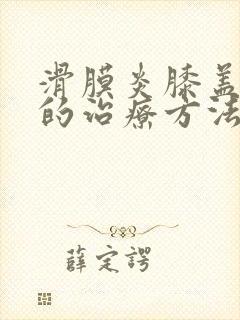 滑膜炎膝盖
的治疗方法
薛定谔